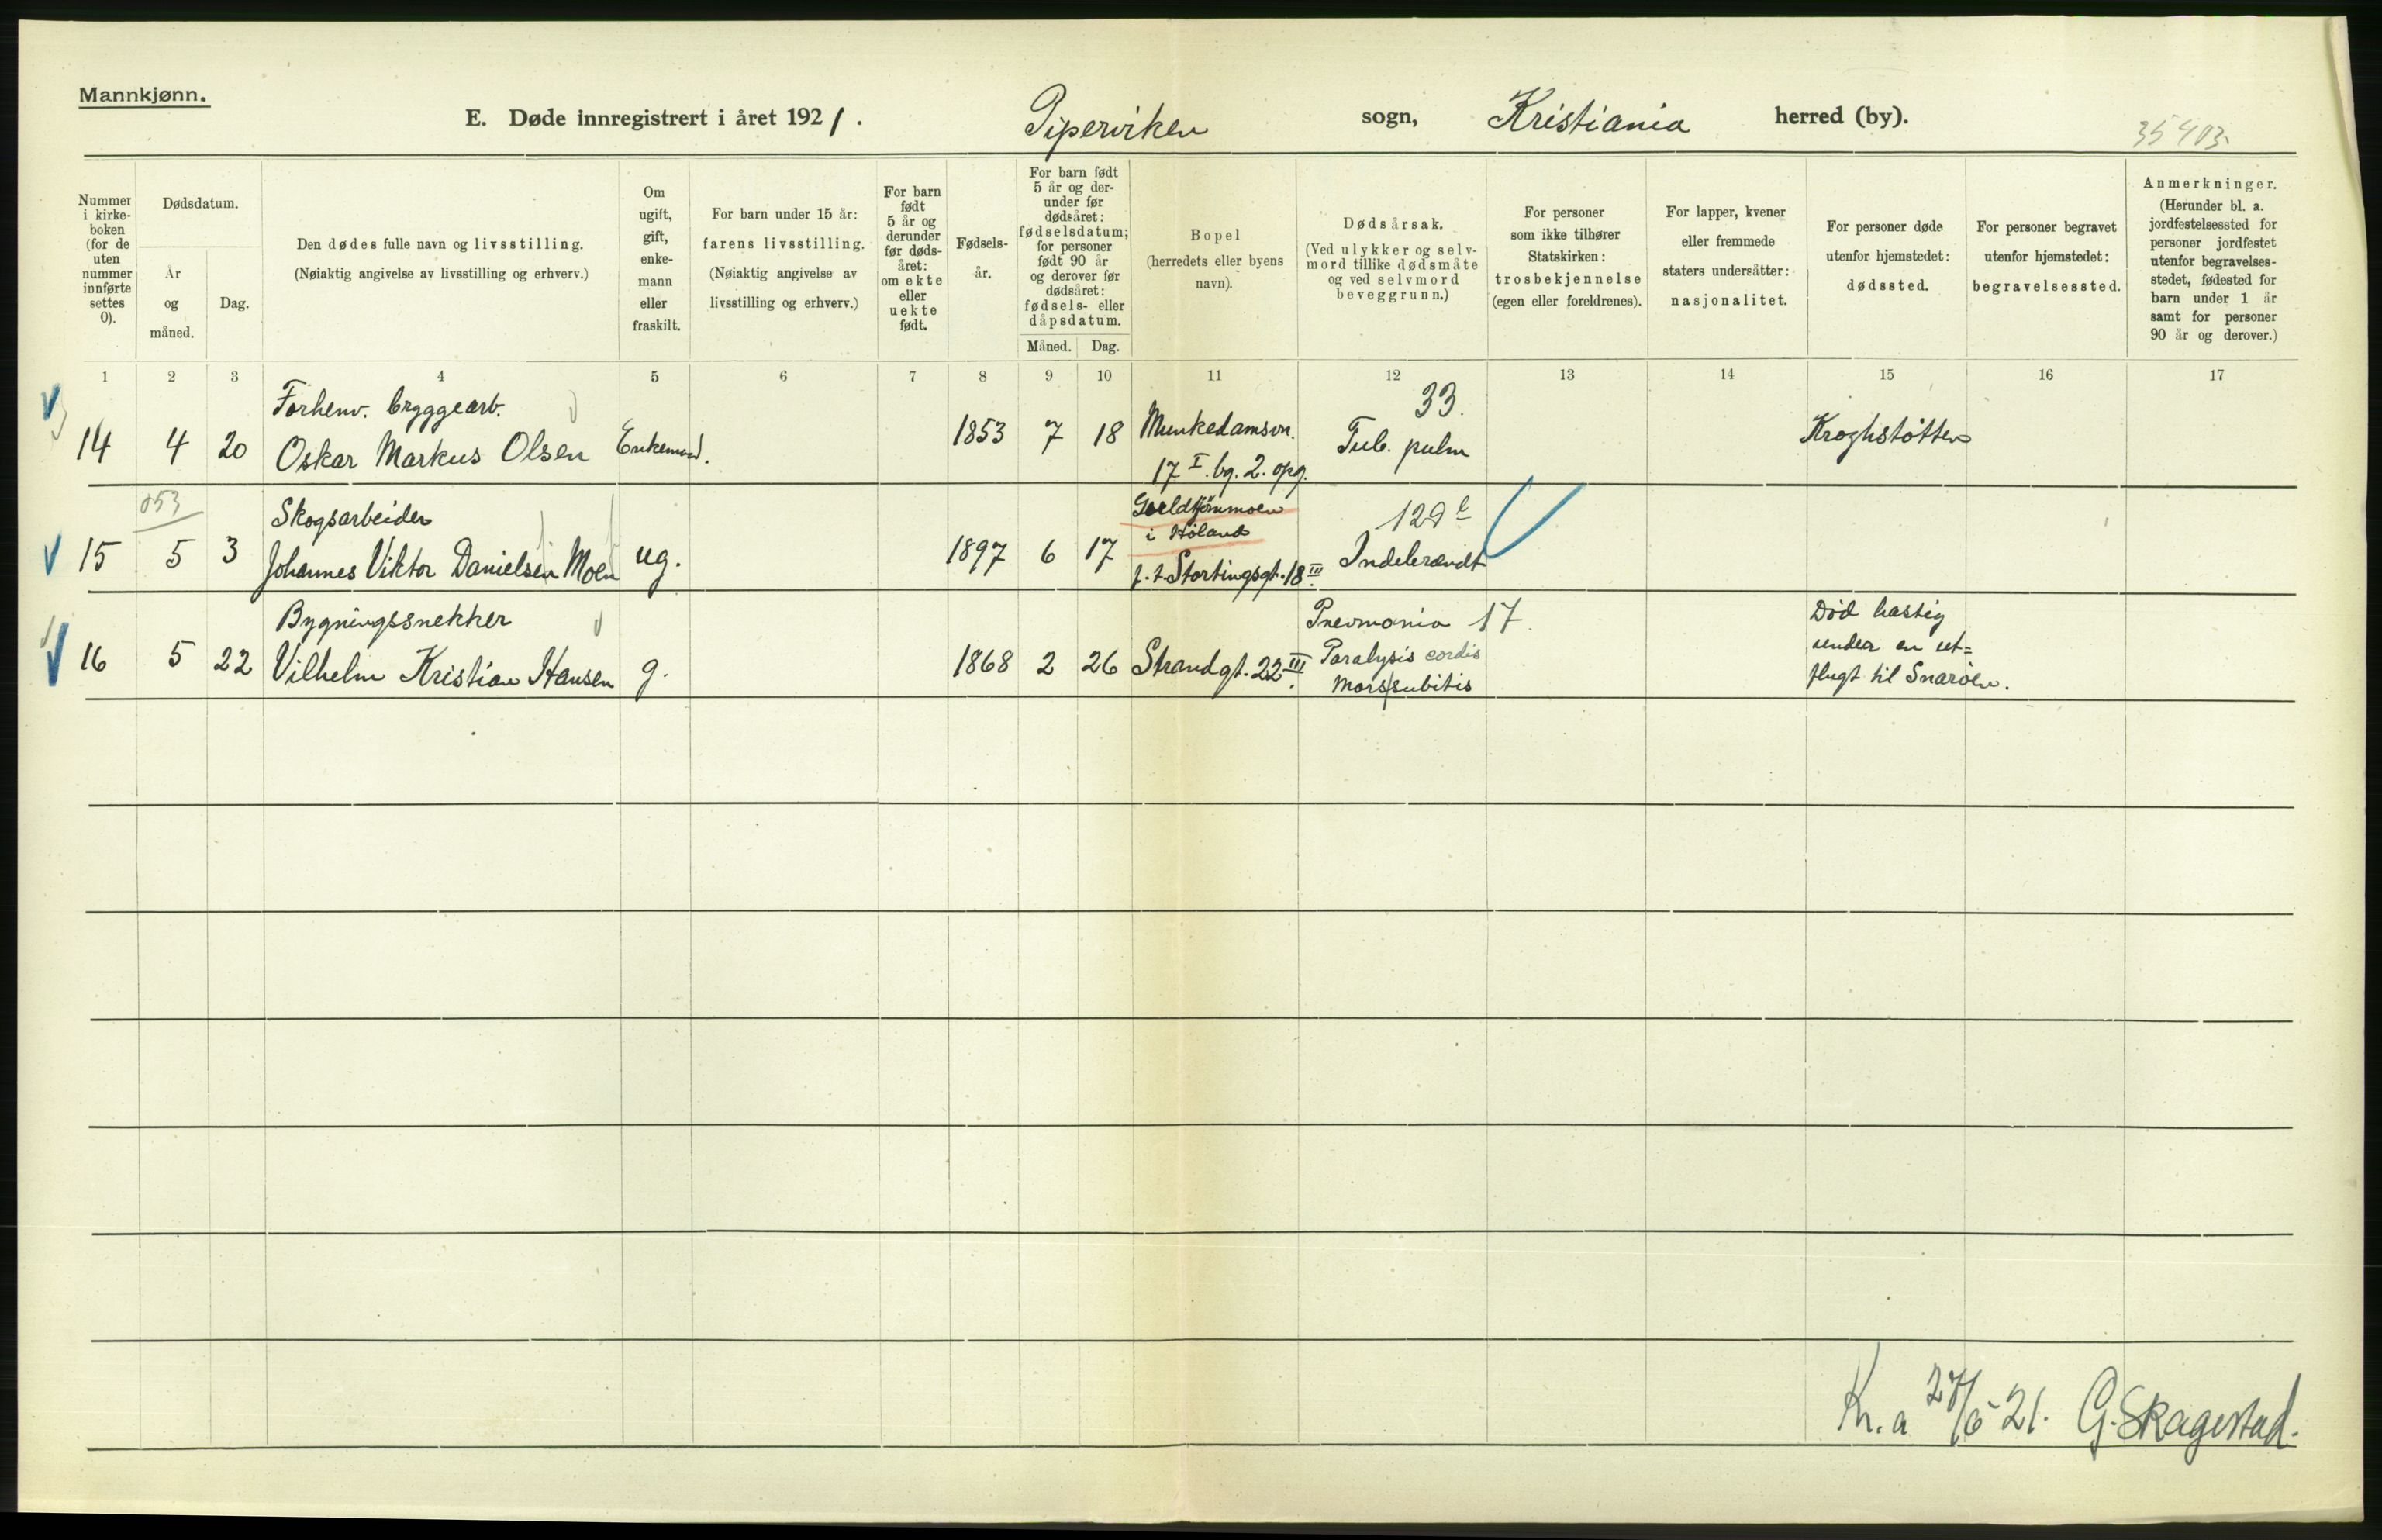 Mannkjønn.
E. Døde innregistrert i året 1921. Piperviken sogn, Kristiania herred (by).
35403
Nummer i kirke-
boken
(for de
uten
nummer
innførte
settes
0).
Dødsdatum.
År
og
måned.
Dag.
Den dødes fulle navn og livsstilling.
(Nøiaktig angivelse av livsstilling og erhverv.)
Om
ugift,
gift,
enke-
mann
eller
fraskilt.
For barn under 15 år:
farens livsstilling.
(Nøiaktig angivelse av
livsstilling og erhverv.)
For barn
født
5 år og
derunder
før døds-
året:
om ekte
eller
uekte
født.
Fødsels-
år.
For barn født
5 år og der-
under før
dødsåret:
fødselsdatum;
for personer
født 90 år
og derover før
dødsåret:
fødsels- eller
dåpsdatum.
Måned. Dag.
Bopel
(herredets eller byens
navn).
Dødsårsak.
(Ved ulykker og selv-
mord tillike dødsmåte
og ved selvmord
beveggrunn.)
For personer
som ikke tilhører
Statskirken:
trosbekjennelse
(egen eller foreldrenes).
For lapper, kvener
eller fremmede
staters undersåtter:
nasjonalitet.
For personer døde
utenfor hjemstedet:
dødssted.
For personer begravet
utenfor hjemstedet:
begravelsessted.
Anmerkninger.
(Herunder bl. a.
jordfestelsessted for
personer jordfestet
utenfor begravelses-
stedet, fødested for
barn under 1 år
samt for personer
90 år og derover.)
1 2 3 4 5 6 7 8 9 10 11 12 13 14 15 16 17
Forhenv. bryggearb. 33.
14 4 20 Oskar Markus Olsen Enkemand. 1853 7 18 Munkedamsvn. Tub. pulm Kroghstøtten
17 I. bg. 2. opg.
053
Skogsarbeider i Höland 129 b
15 5 3 Johannes Viktor Danielsen Moen ug. 1897 6 17 p.t. Stortingsgt. 18 III Indebrændt
Bygningssnekker Pnevmonia 17. Död hastig
16 5 22 Vilhelm Kristian Hansen g. 1868 2 26 Strandgt. 22 III. Paralysis cordis under en ut=
Mors subitis flugt til Snaröen.
Kr.a 27/5 21. G. Skagestad.